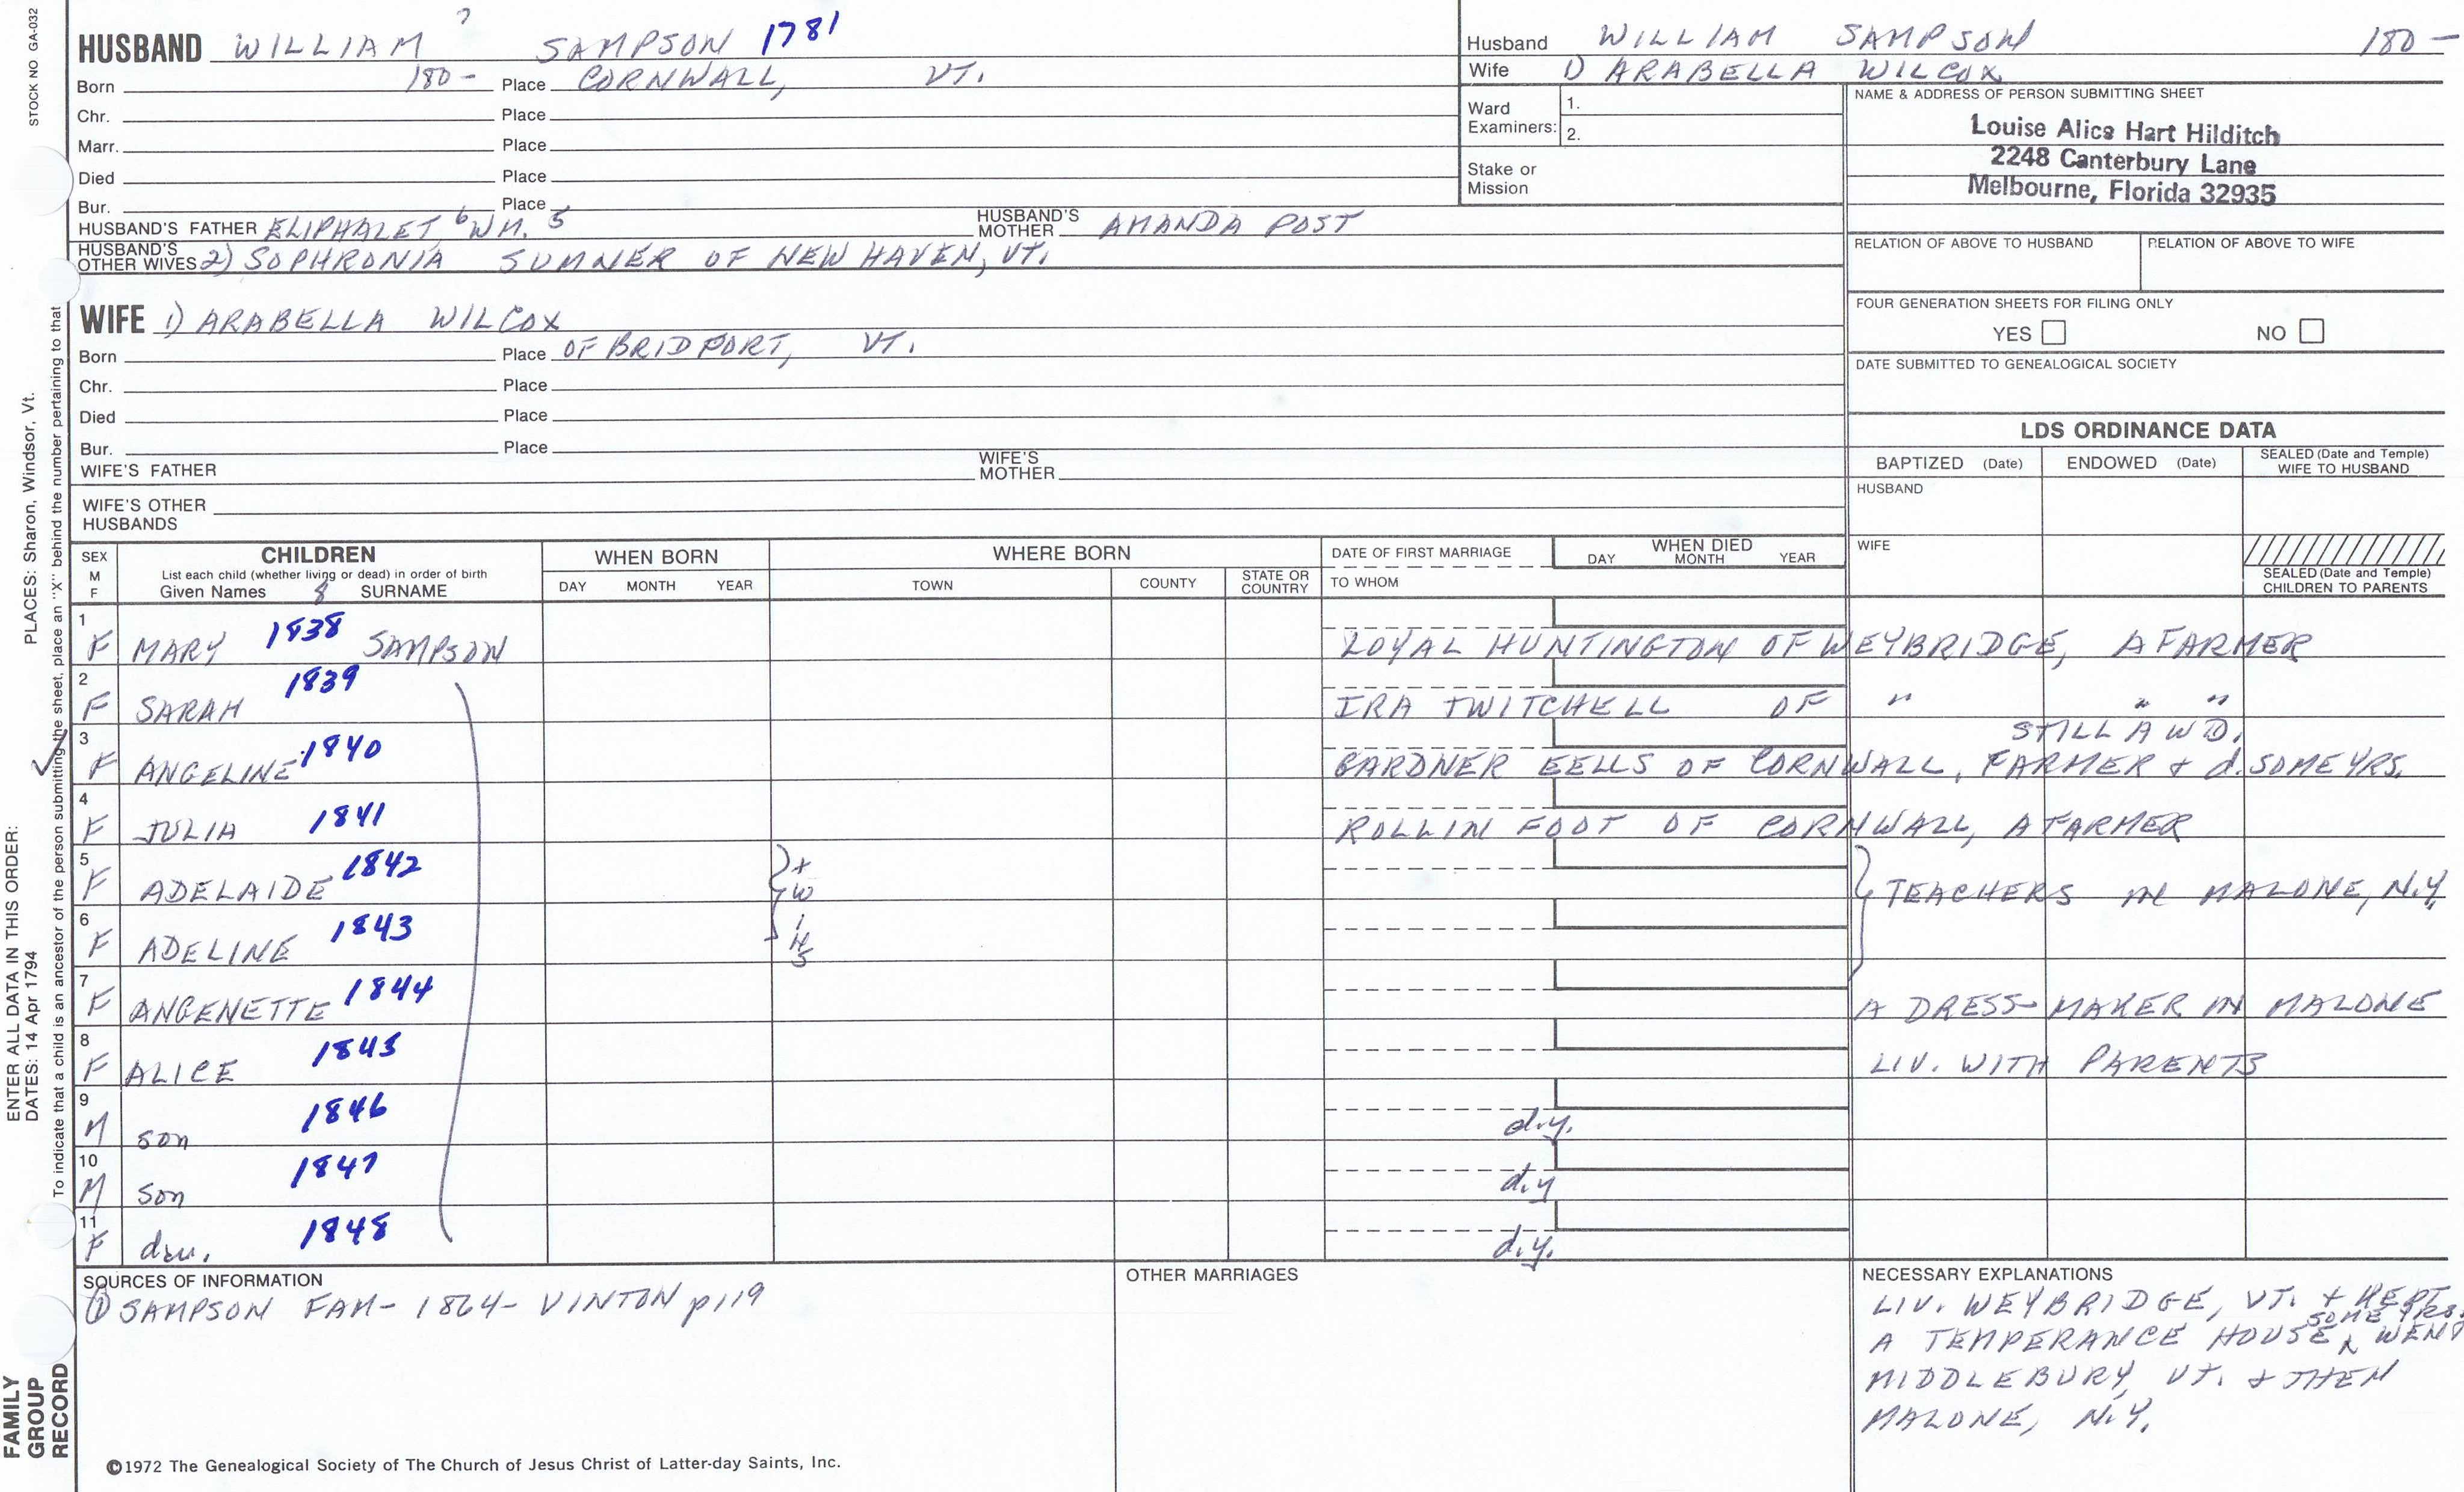 STOCK NO GA-032
HUSBAND WILLIAM ? SAMPSON 1781
Born 180- Place CORNWALL, VT.
Chr. Place
Marr. Place
Died Place
Bur. Place
HUSBAND'S FATHER ELIPHALET 6 WM. 5 HUSBAND'S MOTHER AMANDA POST
HUSBAND'S OTHER WIVES 2) SOPHRONIA SUMNER OF NEW HAVEN, VT.
WIFE 1) ARABELLA WILCOX
Born Place OF BRIDPORT, VT.
Chr. Place
Died Place
Bur. Place
WIFE'S FATHER WIFE'S MOTHER
WIFE'S OTHER HUSBANDS
Husband WILLIAM SAMPSON 180-
Wife 1) ARABELLA WILCOX
Ward Examiners: 1.
2.
Stake or Mission
NAME & ADDRESS OF PERSON SUBMITTING SHEET
Louise Alice Hart Hilditch
2248 Canterbury Lane
Melbourne, Florida 32935
RELATION OF ABOVE TO HUSBAND RELATION OF ABOVE TO WIFE
FOUR GENERATION SHEETS FOR FILING ONLY
YES NO
DATE SUBMITTED TO GENEALOGICAL SOCIETY
LDS ORDINANCE DATA
BAPTIZED (Date) ENDOWED (Date) SEALED (Date and Temple) WIFE TO HUSBAND
HUSBAND
WIFE
SEALED (Date and Temple) CHILDREN TO PARENTS
SEX M F
CHILDREN
List each child (whether living or dead) in order of birth
Given Names 8 SURNAME
WHEN BORN
DAY MONTH YEAR
WHERE BORN
TOWN COUNTY STATE OR COUNTRY
DATE OF FIRST MARRIAGE
TO WHOM
WHEN DIED
DAY MONTH YEAR
1 F MARY 1838 SAMPSON LOYAL HUNTINGTON OF WEYBRIDGE, A FARMER
2 F SARAH 1839 IRA TWITCHELL OF " " "
STILL A WD.
3 F ANGELINE 1840 GARDNER EELLS OF CORNWALL, FARMER & d. SOME YRS.
4 F JULIA 1841 ROLLIN FOOT OF CORNWALL, A FARMER
5 F ADELAIDE 1842 twins TEACHERS IN MALONE, N.Y.
6 F ADELINE 1843
7 F ANGENETTE 1844 A DRESS-MAKER IN MALONE
8 F ALICE 1845 LIV. WITH PARENTS
9 M son 1846 d.y.
10 M son 1847 d.y
11 F dau. 1848 d.y.
SOURCES OF INFORMATION
① SAMPSON FAM- 1864- VINTON p119
OTHER MARRIAGES
NECESSARY EXPLANATIONS
LIV. WEYBRIDGE, VT. & KEPT
A TEMPERANCE HOUSE ^ SOME YRS. WENT
MIDDLEBURY, VT. & THEN
MALONE, N.Y.
©1972 The Genealogical Society of The Church of Jesus Christ of Latter-day Saints, Inc.
PLACES: Sharon, Windsor, Vt.
To indicate that a child is an ancestor of the person submitting the sheet, place an "X" behind the number pertaining to that
ENTER ALL DATA IN THIS ORDER:
DATES: 14 Apr 1794
FAMILY
GROUP
RECORD